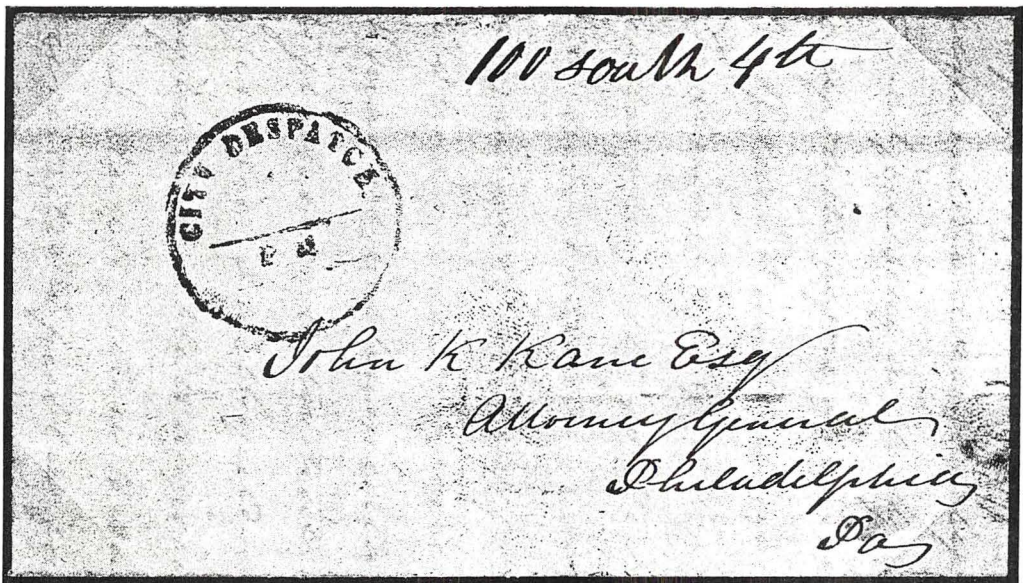 100 south 4th
CITY DESPATCH
P M
John K Kane Esq
Attorney General
Philadelphia
Pa